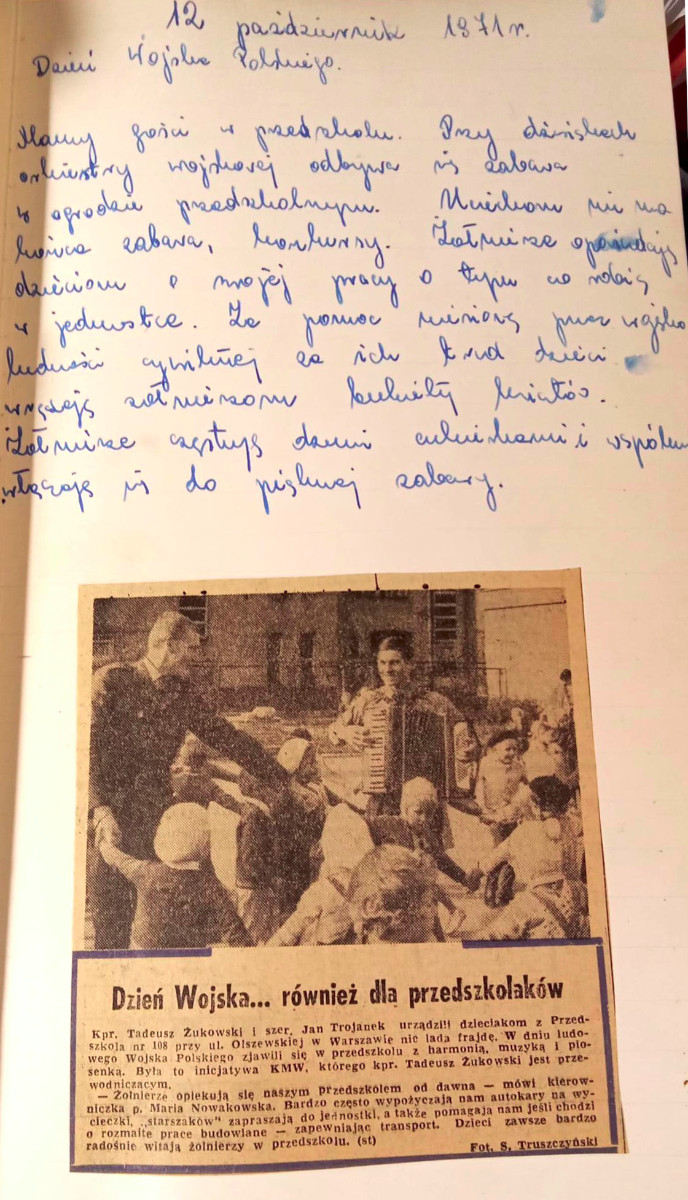 12 październik 1971 r.
Dzień Wojska Polskiego.
Mamy gości w przedszkolu. Przy dźwiękach
orkiestry wojskowej odbywa się zabawa
w ogrodzie przedszkolnym. Uciechom nie ma
końca zabawa, konkursy. Żołnierze opowiadają
dzieciom o swojej pracy o tym co robią
w jednostce. Za pomoc niesioną przez wojsko
ludności cywilnej za ich trud dzieci
wręczają żołnierzom bukiety kwiatów.
Żołnierze częstują dzieci cukierkami i wspólnie
włączają się do pięknej zabawy.
Dzień Wojska... również dla przedszkolaków
Kpr. Tadeusz Żukowski i szer. Jan Trojanek urządzili dzieciakom z Przed-
szkola nr 108 przy ul. Olszewskiej w Warszawie nie lada frajdę. W dniu ludo-
wego Wojska Polskiego zjawili się w przedszkolu z harmonią, muzyką i pio-
senką. Była to inicjatywa KMW, którego kpr. Tadeusz Żukowski jest prze-
wodniczącym.
— Żołnierze opiekują się naszym przedszkolem od dawna — mówi kierow-
niczka p. Maria Nowakowska. Bardzo często wypożyczają nam autokary na wy-
cieczki, „starszaków” zapraszają do jednostki, a także pomagają nam jeśli chodzi
o rozmaite prace budowlane — zapewniając transport. Dzieci zawsze bardzo
radośnie witają żołnierzy w przedszkolu. (st)
Fot. S. Truszczyński